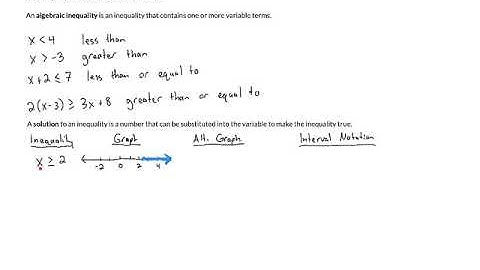 An algebraic inequality is an inequality that contains one or more variable terms.
x < 4 less than
x > -3 greater than
x + 2 ≤ 7 less than or equal to
2(x-3) ≥ 3x + 8 greater than or equal to
A solution to an inequality is a number that can be substituted into the variable to make the inequality true.
Inequality Graph Alt. Graph Interval Notation
x ≥ 2 -2 0 2 4